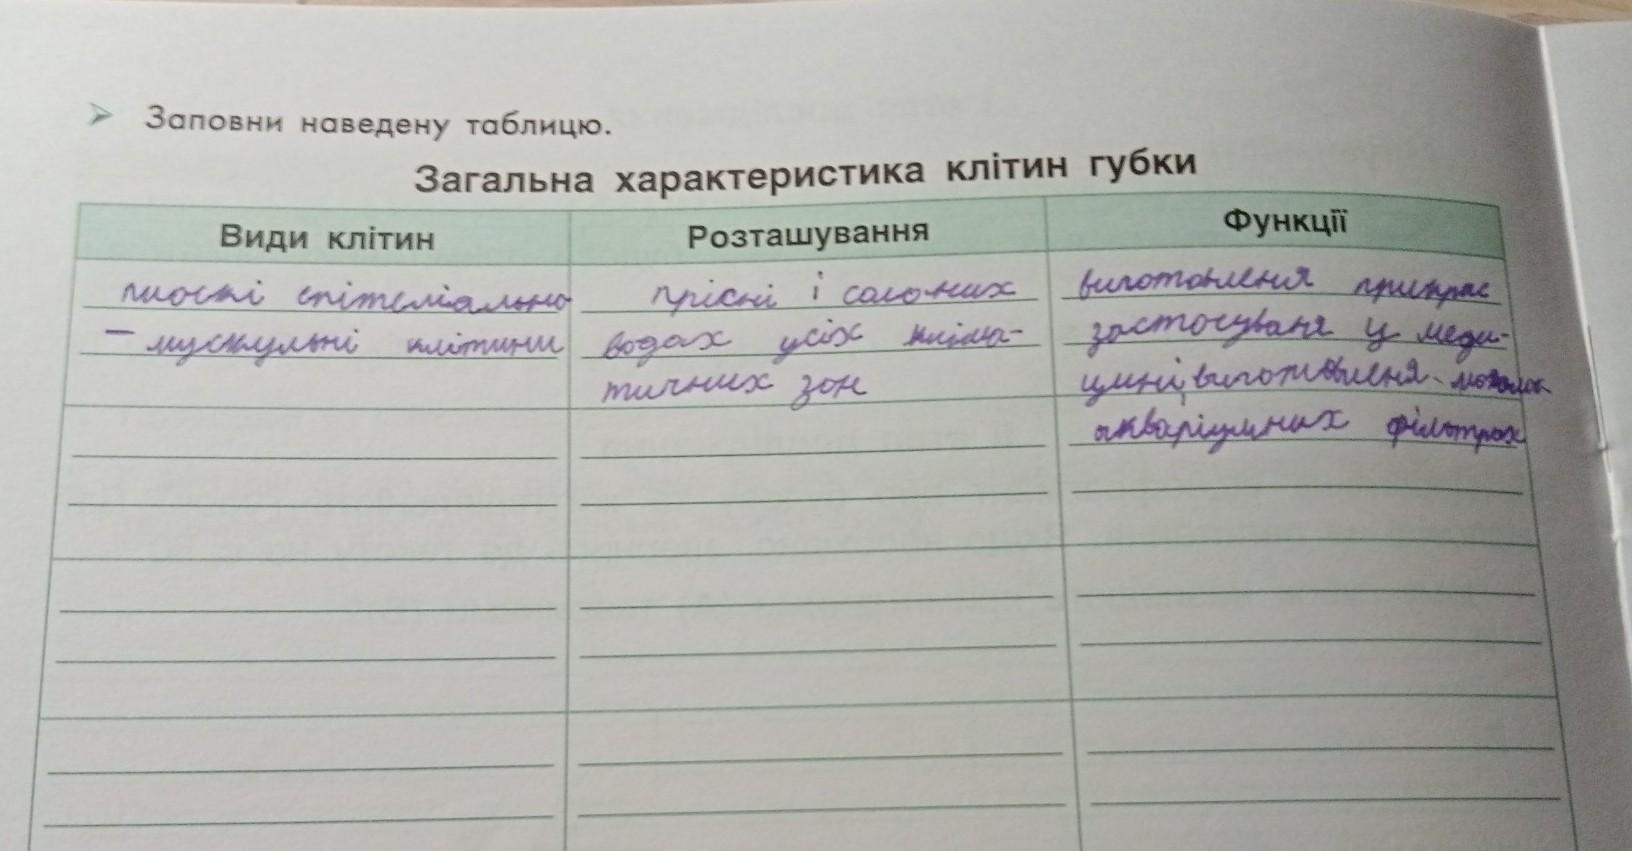 ➢ Заповни наведену таблицю.
Загальна характеристика клітин губки
Види клітин
Розташування
Функції
плоскі епітеліально
– мускульні клітини
прісні і солоних
водах усіх кліма-
тичних зон
виготовленя прикрас
застосуваня у меди-
цині, виготовленя
акваріумних фільтрах